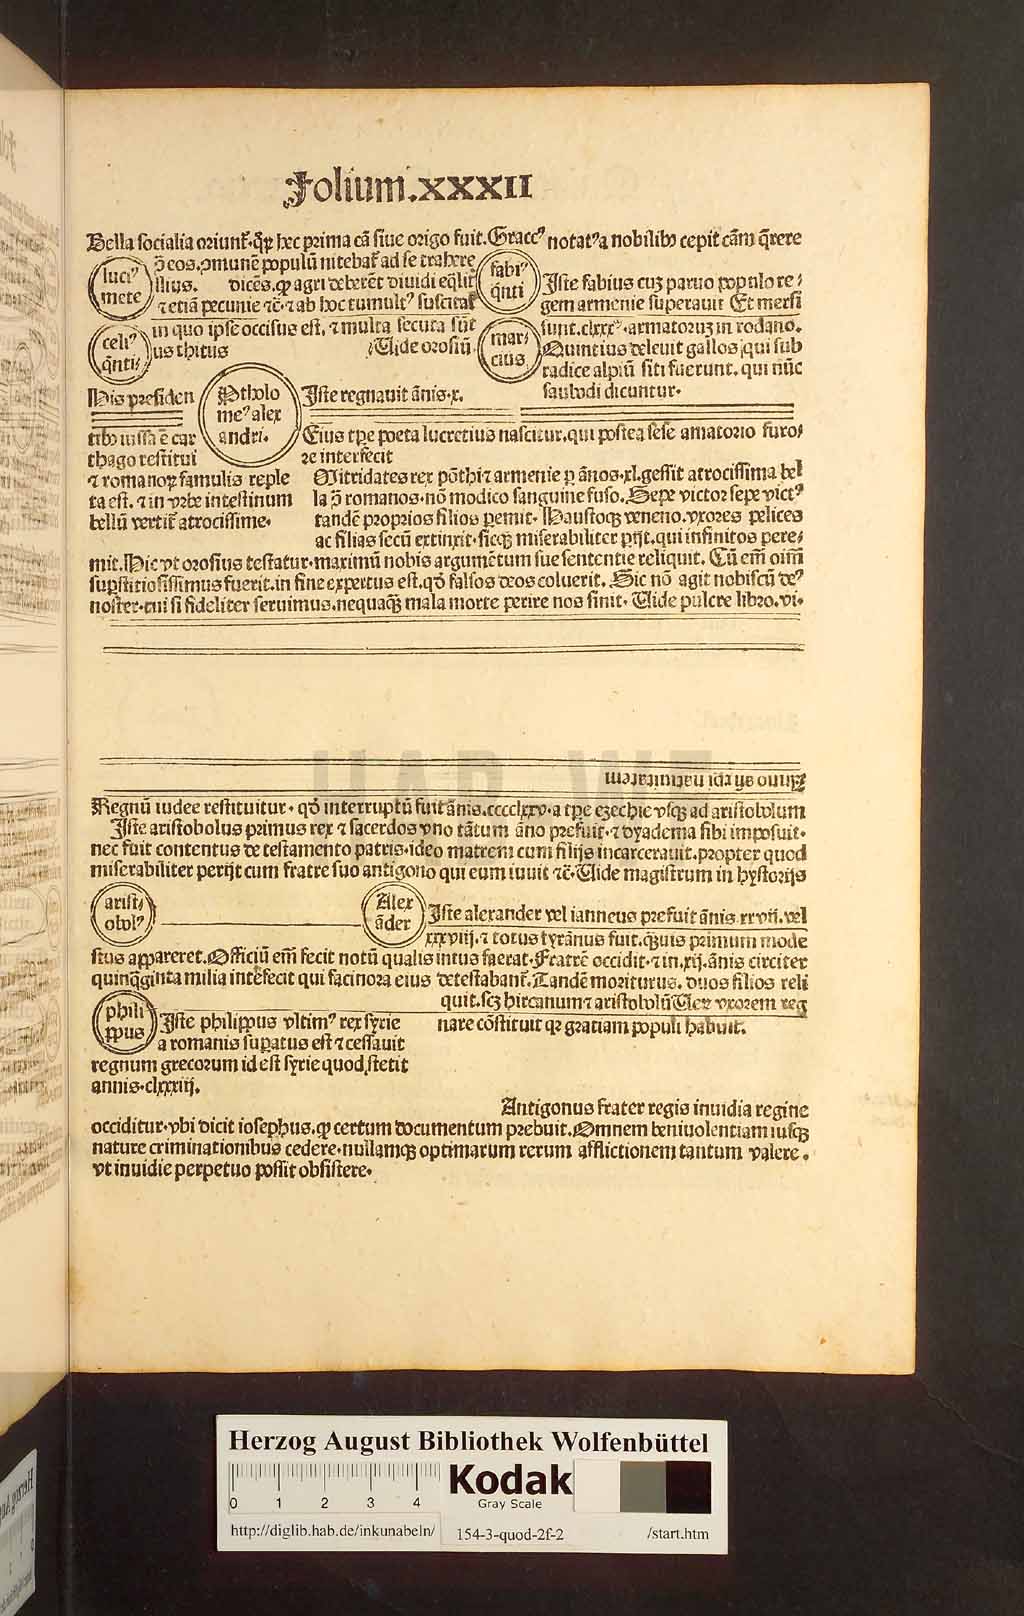 Folium.XXXII
Bella socialia oriunt̃.q̃ꝝ hec prima cã siue origo fuit. Graccꝰ notatꝰ a nobilibꝰ cepit cãm q̃rere
luciꝰ
mete
ꝯ̃ eos.ꝯmunẽ populũ nitebat̃ ad se trahere
illius. dicẽs.ꝙ agri deberẽt diuidi eq̃lit̃
⁊ etiã pecunie ⁊c̃.⁊ ab hoc tumultꝰ suscitat̃
in quo ipse occisus est. ⁊ multa secuta sũt
celiꝰ
q̃nti⸗
us thitus
Uide orosiũ
fabiꝰ
q̃nti
Iste fabius cuʒ paruo populo re⸗
gem armenie superauit Et mersi
sunt.clxxx.armatoruʒ in rodano.
mar⸗
cius
Quintius deleuit gallos qui sub
radice alpiũ siti fuerunt. qui nũc
saubodi dicuntur.
His presiden
tibꝰ iussa ẽ car
thago restitui
⁊ romanoꝝ famulis reple
ta est. ⁊ in vrbe intestinum
bellũ vertit̃ atrocissime.
Ptholo
meꝰ alex
andri.
Iste regnauit ãnis.x.
Eius tꝑe poeta lucretius nascitur.qui postea sese amatorio furo⸗
re interfecit
Mitridates rex põthi ⁊ armenie ꝑ ãnos.xl.gessit atrocissima bel
la ꝯ̃ romanos.nõ modico sanguine fuso. Sepe victor sepe victꝰ
tandẽ proprios filios ꝑemit. Haustoqꝫ veneno.vxores pelices
ac filias secũ extinxit.sicqꝫ miserabiliter ꝑijt.qui infinitos pere⸗
mit. Hic vt orosius testatur.maximũ nobis argumẽtum sue sententie reliquit. Cũ em̃ oim̃
suꝑstitiosissimus fuerit.in fine expertus est.qđ falsos deos coluerit. Sic nõ agit nobiscũ deꝰ
noster.cui si fideliter seruimus.nequaqꝫ̃ mala morte perire nos sinit. Uide pulcre libro.vi.
Anno añ xp̃i natiuitatem
Regnũ iudee restituitur. qđ interruptũ fuit ãnis.cccclxxv.a tꝑe ezechie vsqꝫ ad aristobolum
Iste aristobolus primus rex ⁊ sacerdos vno tãtum ãno prefuit.⁊ dyadema sibi imposuit.
nec fuit contentus de testamento patris.ideo matrem cum filijs incarcerauit.propter quod
miserabiliter perijt cum fratre suo antigono qui eum iuuit ⁊c̃. Uide magistrum in hystorijs
arist⸗
obolꝰ
Alex
ãder
Iste alexander vel ianneus prefuit ãnis.xxvij.vel
xxxviij.⁊ totus tyrãnus fuit. q̃uis primum mode
stus appareret. Officiũ em̃ fecit notũ qualis intus faerat. Fratrẽ occidit.⁊ in.xij.ãnis circiter
quinq̃ginta milia interfecit qui facinora eius detestabant̃. Tandẽ moriturus. duos filios reli
quit.scʒ hircanum ⁊ aristobolũ Uerꝫ vxorem reg
nare cõstituit qꝛ gratiam populi habuit.
phili
ppus
Iste philippus vltimꝰ rex syrie
a romanis suꝑatus est ⁊ cessauit
regnum grecorum id est syrie quod stetit
annis.clxxxiij.
Antigonus frater regis inuidia regine
occiditur.vbi dicit iosephus.ꝙ certum documentum prebuit. Omnem beniuolentiam iusqꝫ
nature criminationibus cedere.nullamqꝫ optimarum rerum afflictionem tantum valere.
vt inuidie perpetuo possit obsistere.
HAB WF
Herzog August Bibliothek Wolfenbüttel
0 1 2 3 4
Kodak
Gray Scale
http://diglib.hab.de/inkunabeln/ 154-3-quod-2f-2 /start.htm